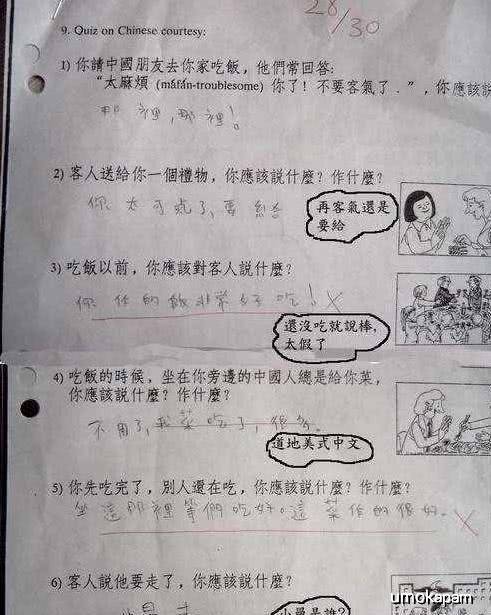 28/30
9. Quiz on Chinese courtesy:
1) 你請中國朋友去你家吃飯，他們常回答：
“太麻煩 (máfán-troublesome) 你了！不要客氣了．”，你應該說
那裡，那裡！
2) 客人送給你一個禮物，你應該説什麼？作什麼？
你太可氣了，要給
再客氣還是
要給
3) 吃飯以前，你應該對客人説什麼？
你作的飯非常好吃！
還沒吃就說棒，
太假了
4) 吃飯的時候，坐在你旁邊的中國人總是給你菜，
你應該説什麼？作什麼？
不用了，我菜吃了，很多。
道地美式中文
5) 你先吃完了，別人還在吃，你應該説什麼？作什麼？
坐這那裡等們吃好。這菜作的很好。
6) 客人說他要走了，你應該說什麼？
小晨是誰?
umokapam